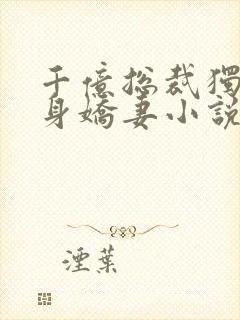 千億總裁獨
身嬌妻小說
湮葉